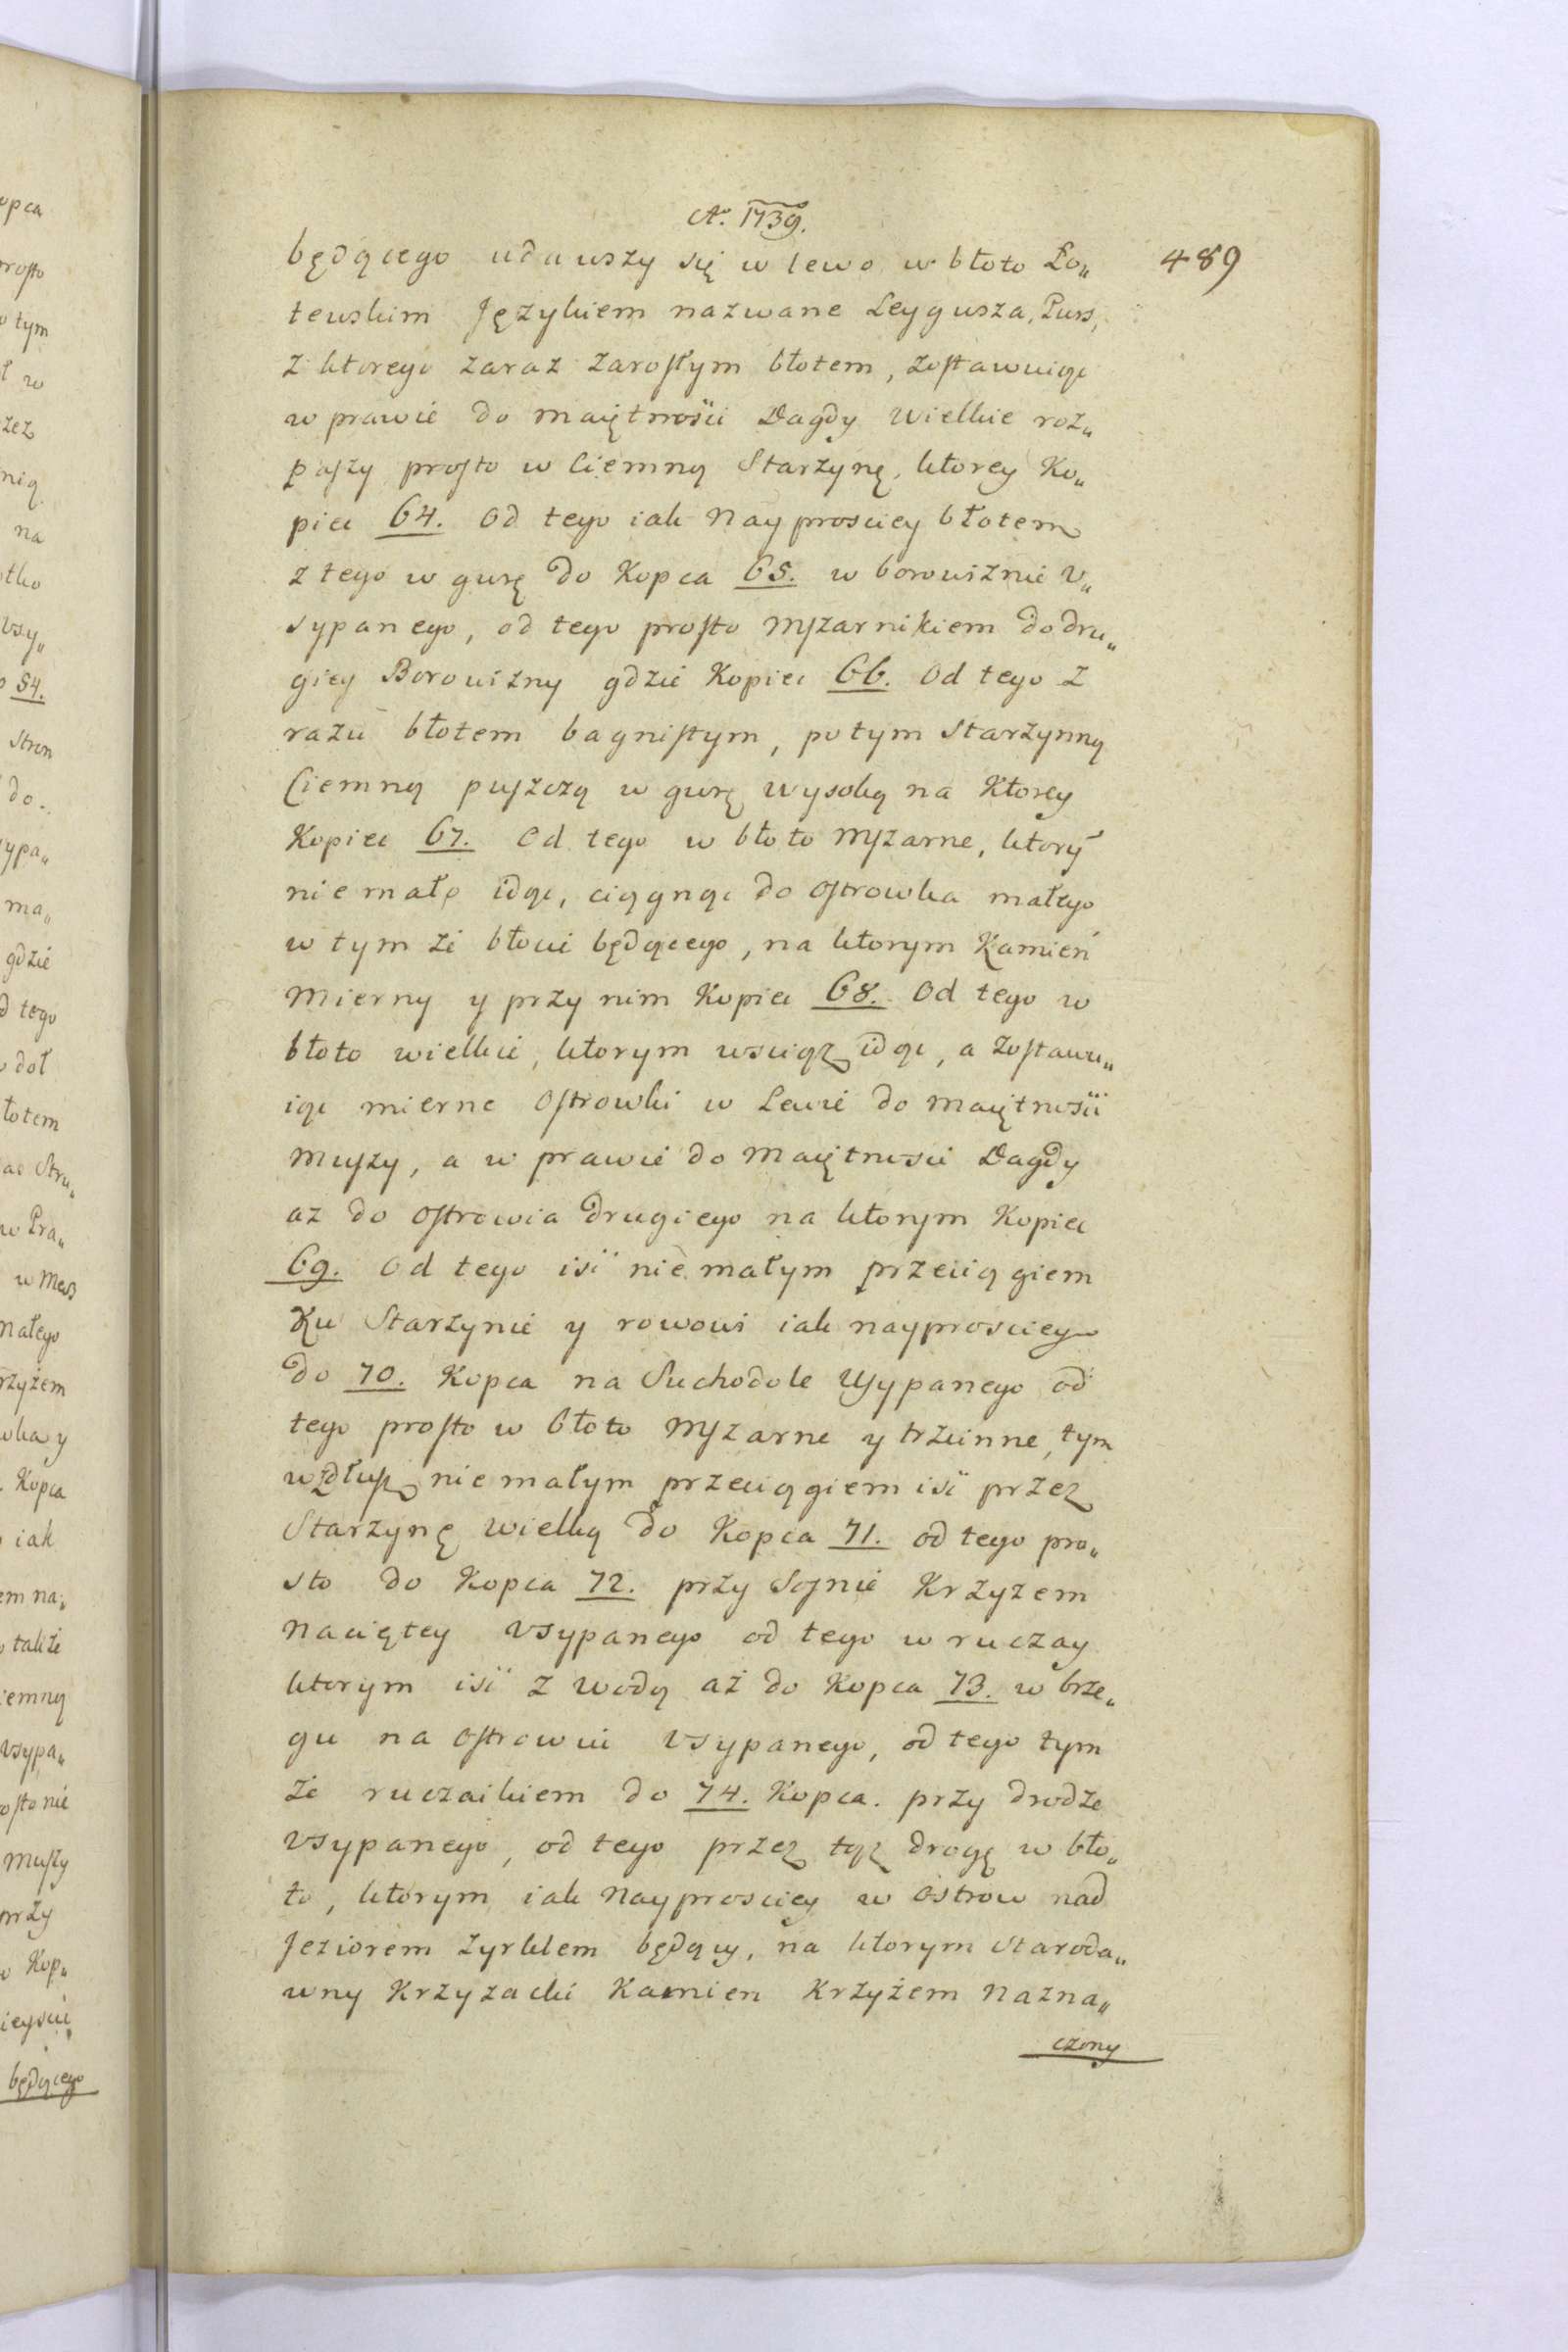 Aō. 1739.
489
będącego udawszy się w lewo w błoto Ło„
tewskim Językiem nazwane Leygusza, Purs,
z ktorego zaraz zarosłym błotem, zostawuiąc
w prawie do maiętności Dagdy wielkie roz„
paszy prosto w Ciemną Starzynę, ktorey Ko„
piec 64. od tego iak nayprosciey błotem
z tego w gurę do Kopca 65. w borowiznie V„
sypanego, od tego prosto Mszarnikiem do dru„
giey Borowizny gdzie Kopiec 66. od tego z
razu błotem bagnistym, potym Starzynną
Ciemną puszczą w gurę wysoką na Ktorey
Kopiec 67. od tego w błoto Mszarne, ktorÿ
niemało idąc, ciągnąc do ostrowka małego
w tym że błocie będącego, na ktorym Kamień
Mierny y przy nim Kopiec 68. od tego w
błoto wielkie, ktorym wsciąż idąc, a zostawu„
iąc mierne ostrowki w Lewie do maiętności
Muszy, a w prawie do maiętności Dagdy
az do ostrowia drugiego na ktorym Kopiec
69. od tego iść niemałym przeciągiem
Ku Starzynie y rowowi iak nayprosciey
do 70. Kopca na Suchodole Usypanego od
tego prosto w błoto Mszarne y trzcinne, tym
wzdłusz niemałym przeciągiem iść przez
Starzynę wielką do Kopca 71. od tego pro„
sto do Kopca 72. przy Sosnie Krzyzem
Naciętey Vsypanego od tego w ruczay
ktorym iść z wodą aż do Kopca 73. w brze„
gu na ostrowiu Vsypanego, od tego tym
że ruczaikiem do 74. Kopca. przy drodze
Vsypanego, od tego przez tąż drogę w bło„
to, ktorym iak Nayprosciey w ostrow nad
Jeziorem Zyrklem będący, na ktorym staroda„
wny Krzyzacki Kamien Krzyżem Nazna„
czony
opca
rosto
tym
ł w
żez
nią
na
tko
Vsy„
54.
stron
do.
sypa„
ma„
gdzie
d tego
w doł
łotem
Stru„
w Pra„
w Mess
małego
rzyżem
wka y
Kopca
iak
em na„
także
iemną
vsypa„
osto nie
Muszy
przy
w Kop„
ieyscu
będącego